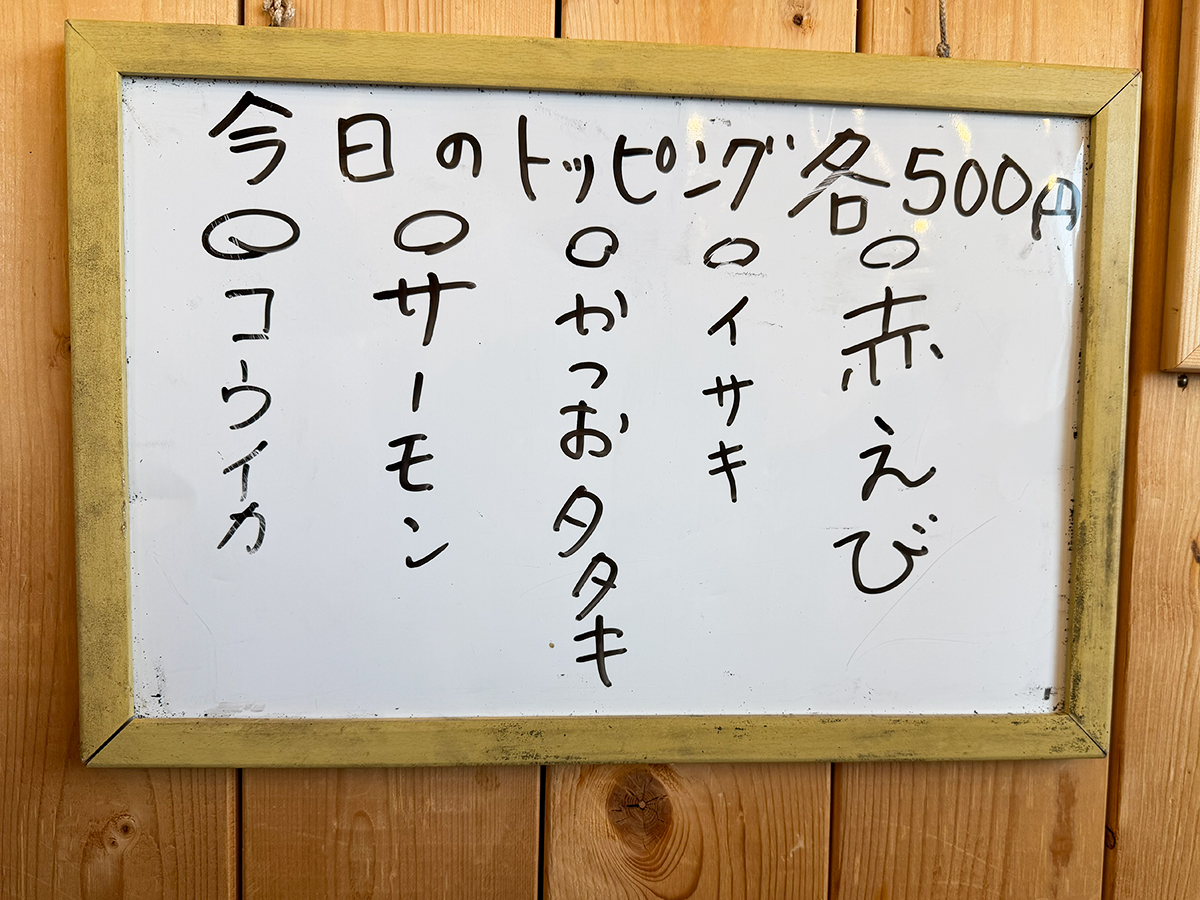 今日のトッピング各500円
○赤えび
○イサキ
○かつおタタキ
○サーモン
○コウイカ